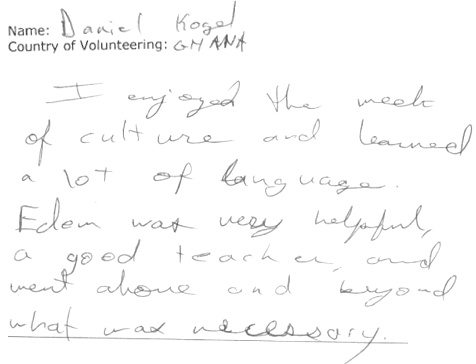 Name: Daniel Kogel
Country of Volunteering: GHANA
I enjoyed the week
of culture and learned
a lot of language.
Edem was very helpful,
a good teacher, and
went above and beyond
what was necessary.